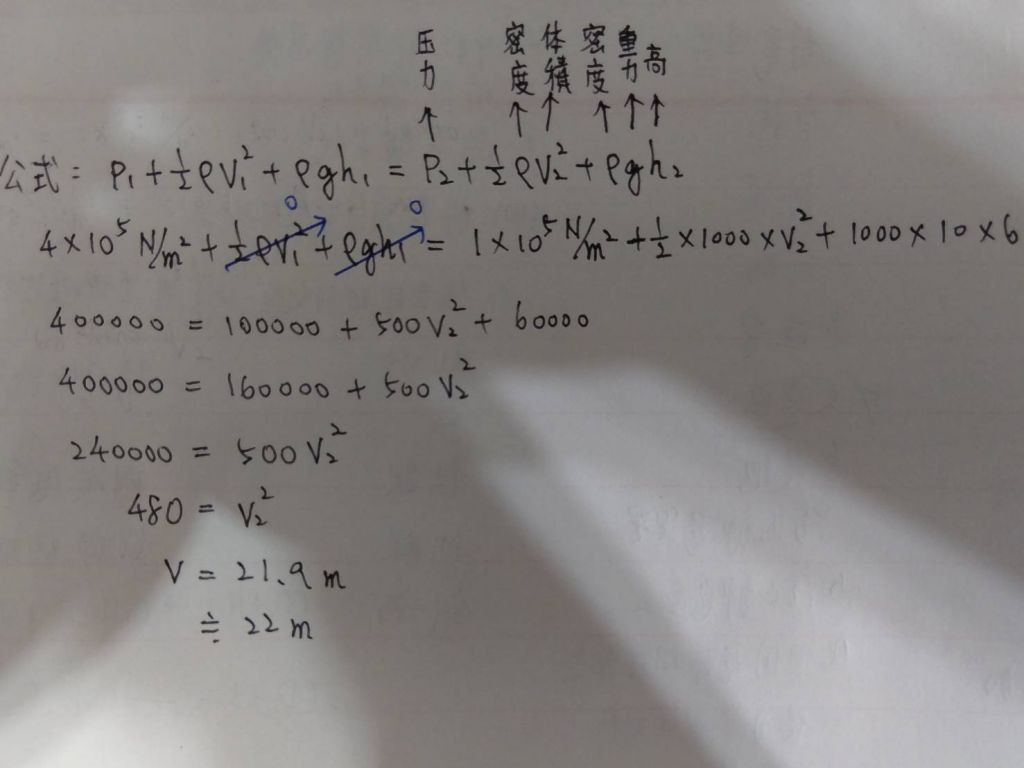 压力 密度 体積 密度 重力 高
↑ ↑ ↑ ↑ ↑ ↑
公式: P₁ + ½ρV₁² + ρgh₁ = P₂ + ½ρV₂² + ρgh₂
0 0
4×10⁵ N/m² + ½ρV₁² + ρgh₁ = 1×10⁵ N/m² + ½×1000×V₂² + 1000×10×6
400000 = 100000 + 500V₂² + 60000
400000 = 160000 + 500V₂²
240000 = 500V₂²
480 = V₂²
V = 21.9 m
≒ 22 m